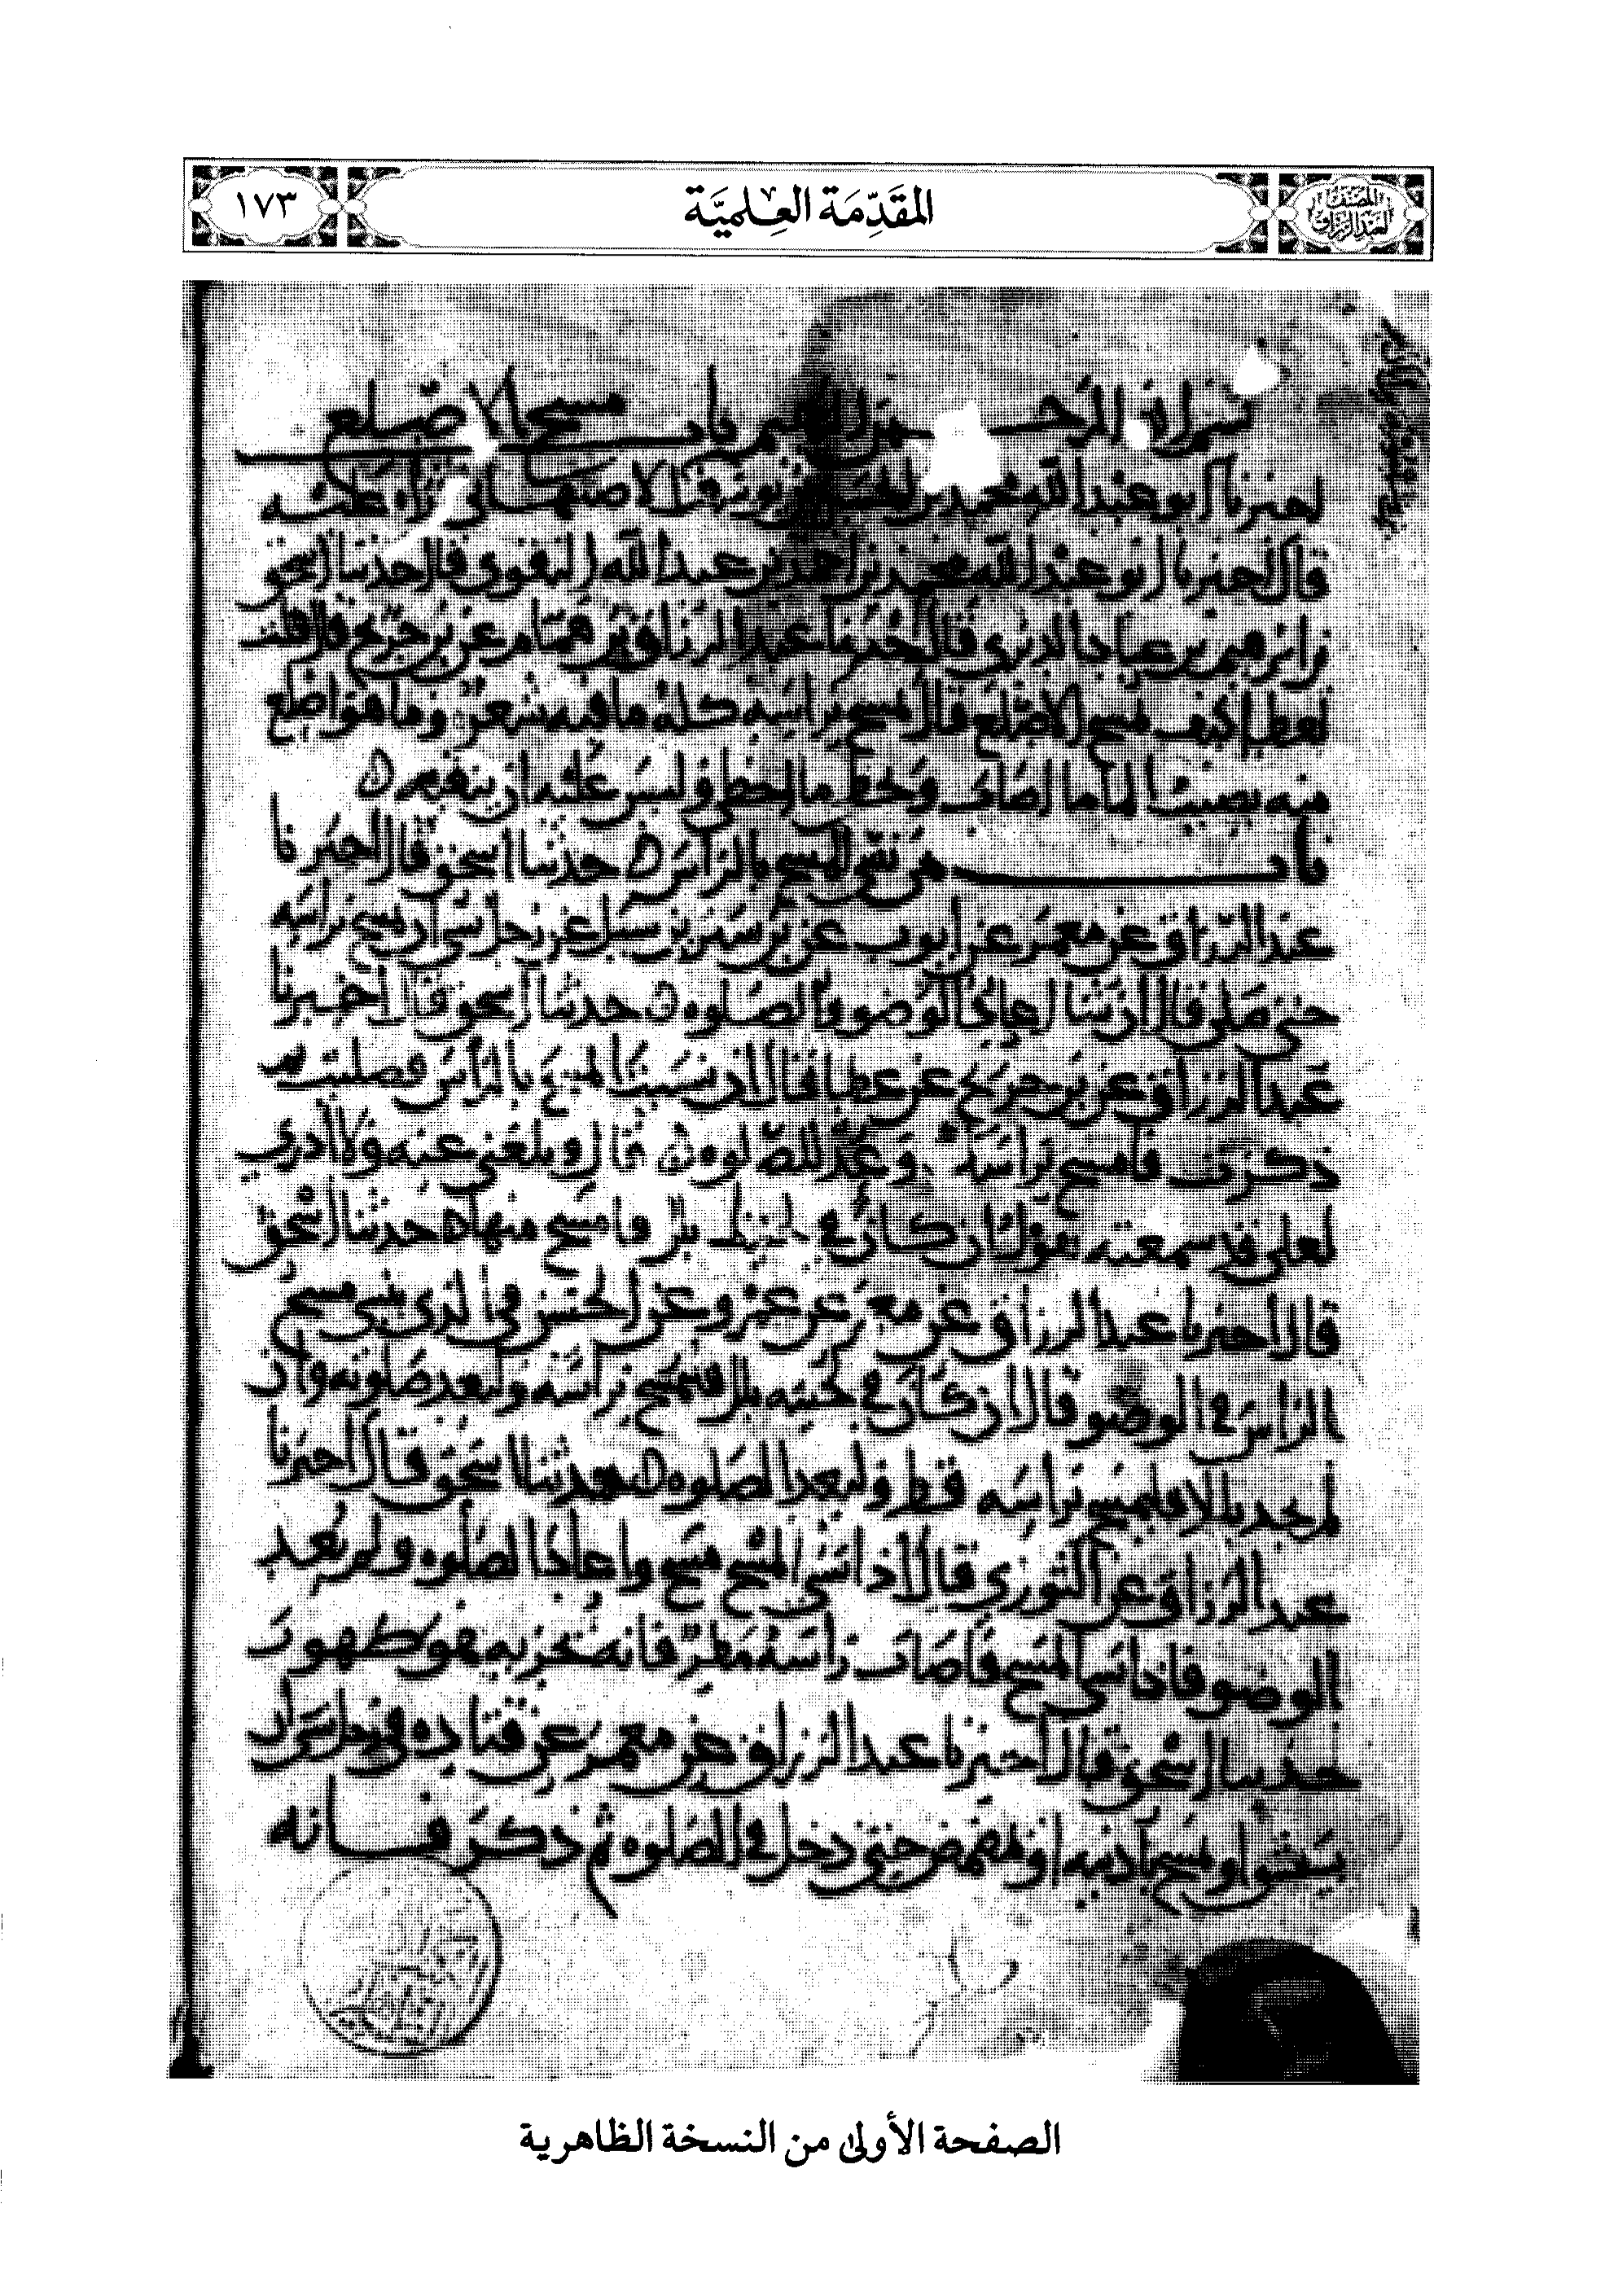 المصنف لعبد الرزاق
المقَدِّمَة العِلميَّة
١٧٣
بسم الله الرحمن الرحيم باب مسح الاصلع
اخبرنا ابو عبد الله محمد بن الحسن بن الاصبهاني
قال اخبرنا ابو عبد الله محمد بن احمد بن عبد الله النقوي قال حدثنا اسحق
بن ابرهيم بن عباد الدبري قال اخبرنا عبد الرزاق بن همام عن بن جريج قال قلت
لعطا كيف يمسح الاصلع قال يمسح براسه كله ما فيه شعر وما هو اصلع
منه يصيب الماء ما اصاب ويخطي ما اخطى وليس عليه ان ينقيه
باب من نسي المسح بالراس حدثنا اسحق قال اخبرنا
عبد الرزاق عن معمر عن ايوب عن بن سيرين سيل عن رجل نسي ان يمسح براسه
حتى صلى قال ان شا اعاد الوضو والصلوه حدثنا اسحق قال اخبرنا
عبد الرزاق عن بن جريج عن عطا قال اذ نسيت المسح بالراس فصليت ثم
ذكرت فامسح براسك وعد للصلوه قال وبلغني عنه ولا ادري
لعلي قد سمعته يقول ان كان في لحيتك بلل فامسح منها حدثنا اسحق
قال اخبرنا عبد الرزاق عن معمر عن عمرو عن الحسن في الذي ينسى مسح
الراس في الوضو قال ان كان في لحيته بلل فليمسح براسه وليعد صلوته وان
لم يجد بللا فليمسح براسه قط وليعد الصلوه حدثنا اسحق قال اخبرنا
عبد الرزاق عن الثوري قال اذا نسي المسح مسح واعاد الصلوه ولم يعد
الوضو فاذا نسي المسح فاصاب راسه مطر فانه يجزيه هو طهور
حدثنا اسحق قال اخبرنا عبد الرزاق عن معمر عن قتاده في رجل نسي ان
يستنثر او يمسح باذنيه او يتمضمض حتى دخل في الصلوه ثم ذكر فانه
الصفحة الأولى من النسخة الظاهرية